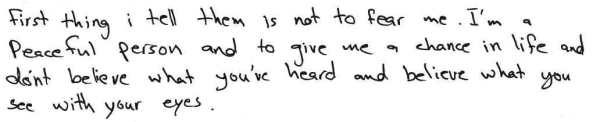 First thing i tell them is not to fear me. I'm a
Peaceful person and to give me a chance in life and
don't believe what you've heard and believe what you
see with your eyes.